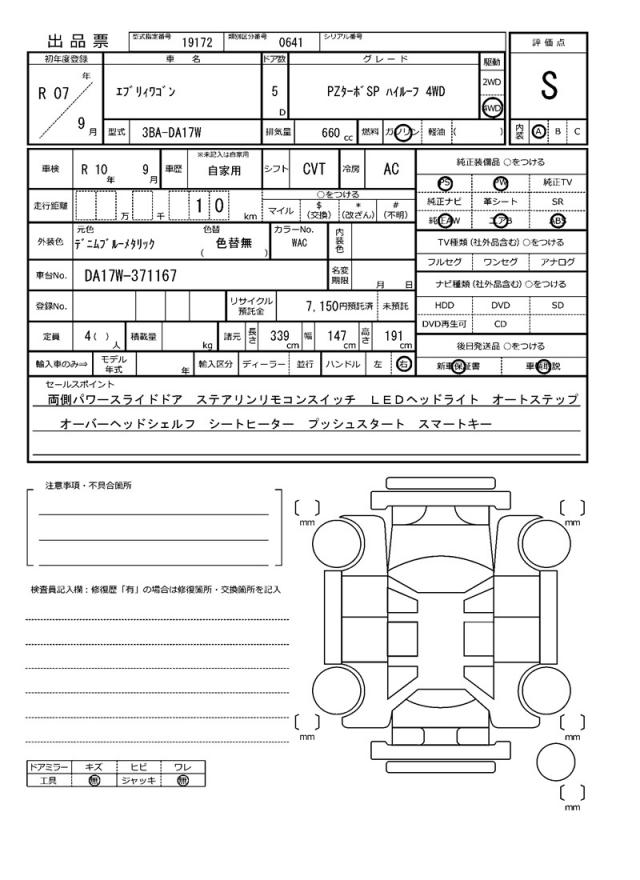 出品票 型式指定番号 19172 類別区分番号 0641 シリアル番号
評価点
S
初年度登録 車名 ドア数 グレード 駆動
R 07 年 9 月
ｴﾌﾞﾘｨﾜｺﾞﾝ 5 D PZﾀｰﾎﾞSP ﾊｲﾙｰﾌ 4WD
2WD
4WD
型式 3BA-DA17W 排気量 660 cc 燃料 ガソリン 軽油 ( )
内装 A B C
車検 R 10 年 9 月 車歴 ※未記入は自家用 自家用 シフト CVT 冷房 AC
純正装備品 ○をつける
PS PW 純正TV
純正ナビ 革シート SR
純正AW エアB ABS
走行距離 万 千 1 0 km
○をつける
マイル $(交換) *(改ざん) #(不明)
外装色 元色 ﾃﾞﾆﾑﾌﾞﾙｰﾒﾀﾘｯｸ 色替 ( 色替無 ) カラーNo. WAC 内装色
TV種類 (社外品含む) ○をつける
フルセグ ワンセグ アナログ
車台No. DA17W-371167 名変期限 月 日
ナビ種類 (社外品含む) ○をつける
HDD DVD SD
DVD再生可 CD
登録No. リサイクル預託金 7,150円預託済 未預託
定員 4( ) 人 積載量 kg 諸元 長さ 339 cm 幅 147 cm 高さ 191 cm
後日発送品 ○をつける
新車保証書 車輌取説
輸入車のみ⇒ モデル年式 年 輸入区分 ディーラー 並行 ハンドル 左 右
セールスポイント
両側パワースライドドア ステアリンリモコンスイッチ LEDヘッドライト オートステップ
オーバーヘッドシェルフ シートヒーター プッシュスタート スマートキー
注意事項・不具合箇所
検査員記入欄：修復歴「有」の場合は修復箇所・交換箇所を記入
mm
mm
mm
mm
mm
ドアミラー キズ ヒビ ワレ
工具 無 ジャッキ 無